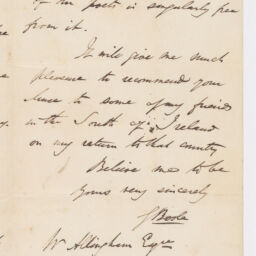 of our poets is singularly free
from it.
It will give me much
pleasure to recommend your
to some of my friends
in the South of Ireland
on my return to that country
Believe me to be
yours very sincerely
G Boole
W Allingham Esqre